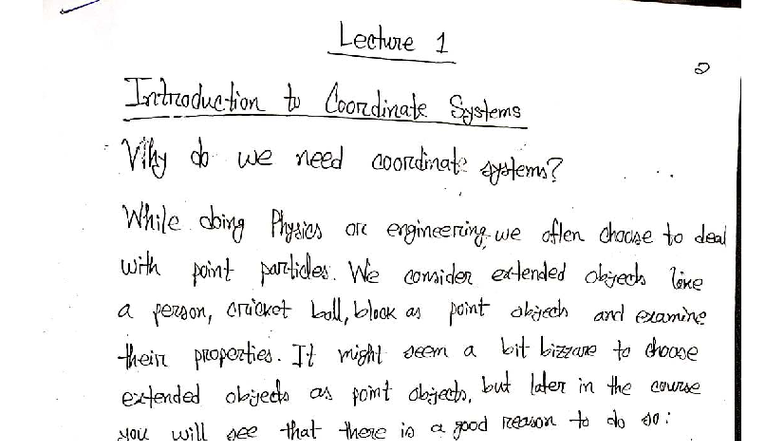 Lecture 1
2
Introduction to Coordinate Systems
Why do we need coordinate systems?
While doing Physics or engineering, we often choose to deal
with point particles. We consider extended objects like
a person, cricket ball, block as point objects and examine
their properties. It might seem a bit bizzare to choose
extended objects as point objects, but later in the course
you will see that there is a good reason to do so: